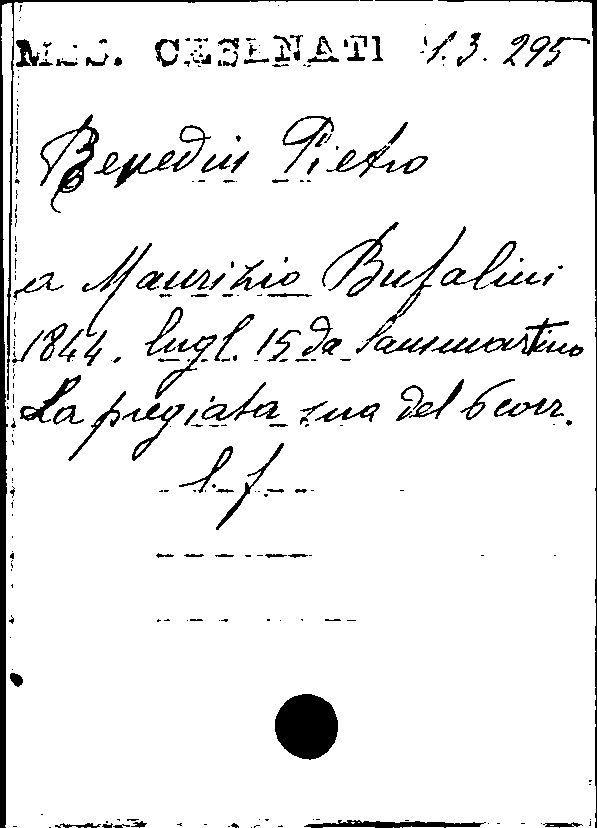 MSS. CESENATI 1.3.295
Benedin Pietro
a Maurizio Bufalini
1844. lugl. 15 da Sansmartino
La pregiata sua del 6 corr.
l. f.